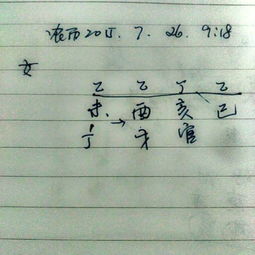 2015. 7. 26. 9:18
女
乙 乙 丁 乙
未 酉 亥 巳
丁 → 才 官